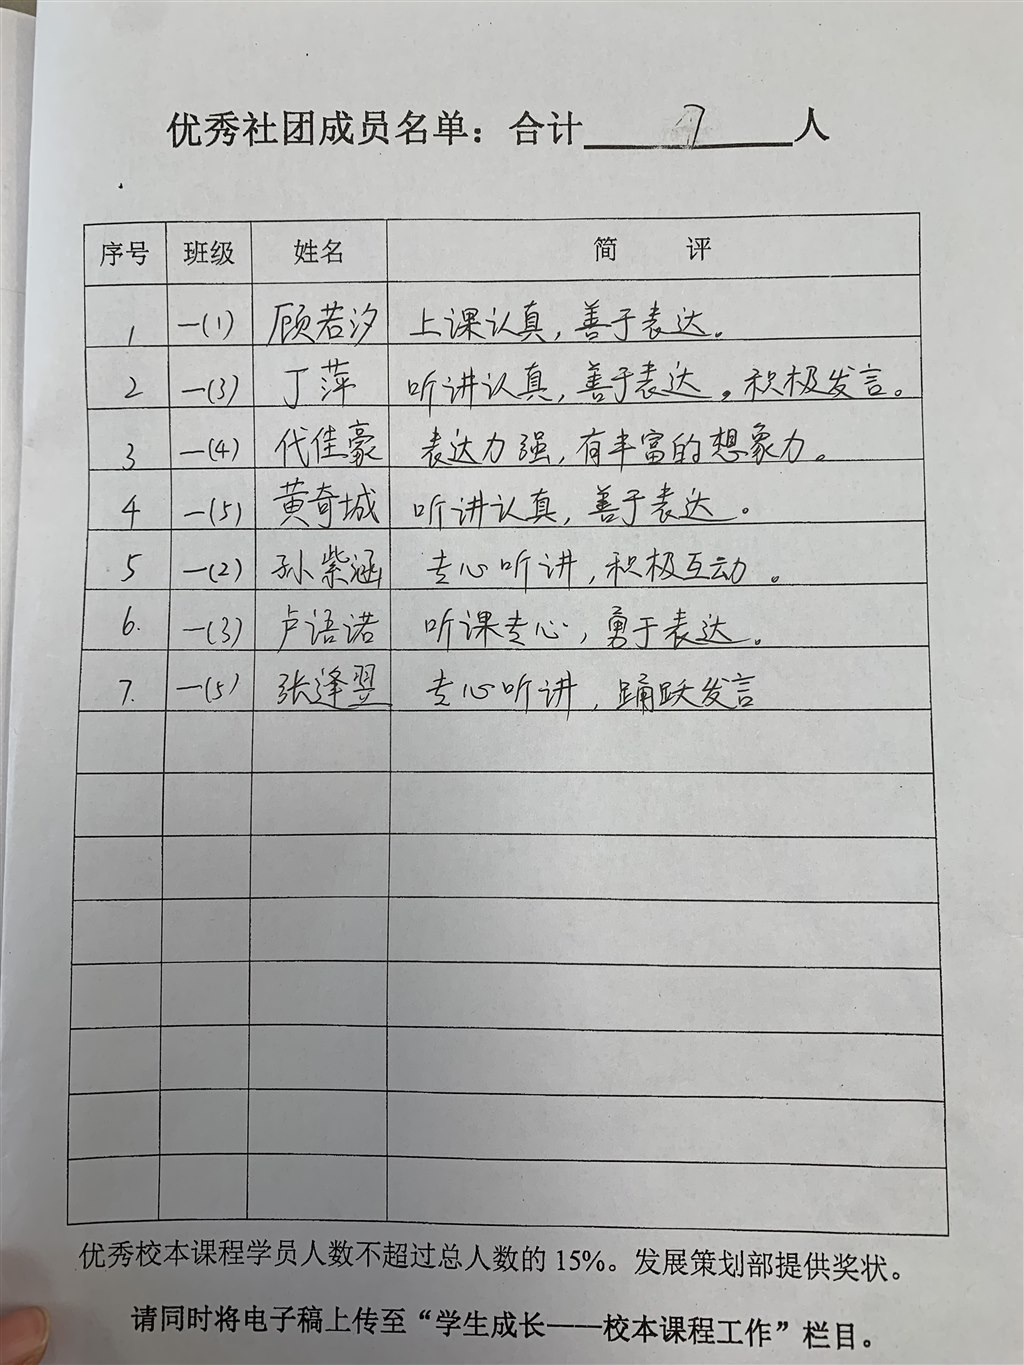 优秀社团成员名单：合计 7 人
序号 班级 姓名 简 评
1 一(1) 顾若汐 上课认真，善于表达。
2 一(3) 丁萍 听讲认真，善于表达，积极发言。
3 一(4) 代佳豪 表达力强，有丰富的想象力。
4 一(5) 黄奇城 听讲认真，善于表达。
5 一(2) 孙紫涵 专心听讲，积极互动。
6. 一(3) 卢语诺 听课专心，勇于表达。
7. 一(5) 张逢翌 专心听讲，踊跃发言
优秀校本课程学员人数不超过总人数的 15%。发展策划部提供奖状。
请同时将电子稿上传至“学生成长——校本课程工作”栏目。